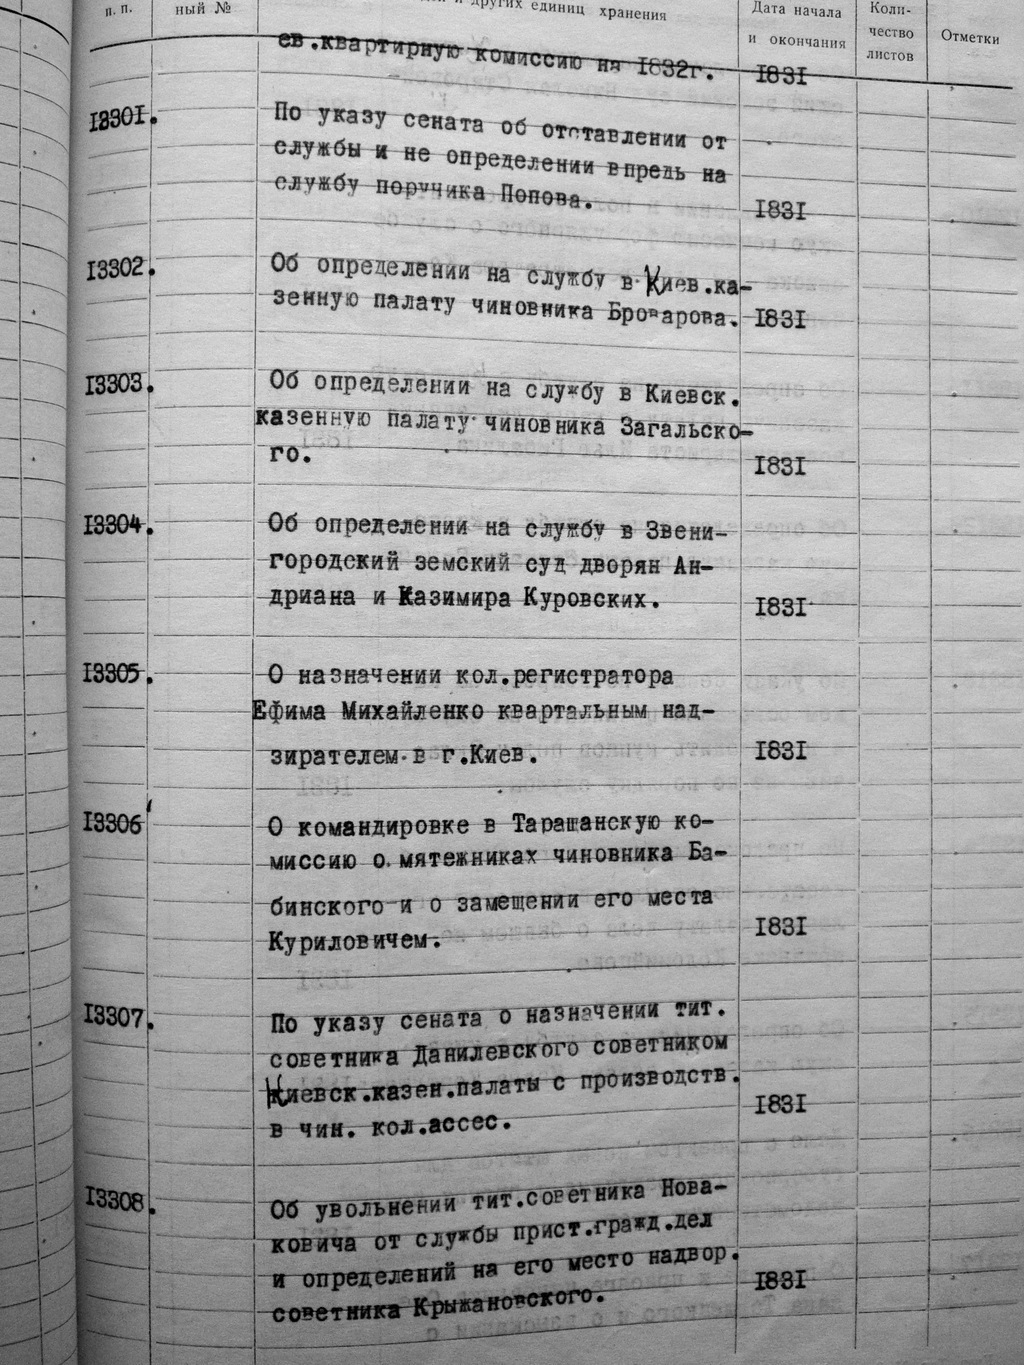 п. п.
ный №
и других единиц хранения
Дата начала
и окончания
Коли-
чество
листов
Отметки
ев.квартирную комиссию на 1832г. 1831
13301. По указу сената об отставлении от
службы и не определении впредь на
службу поручика Попова. 1831
13302. Об определении на службу в Киев.ка-
зенную палату чиновника Броварова. 1831
13303. Об определении на службу в Киевск.
казенную палату чиновника Загальско-
го. 1831
13304. Об определении на службу в Звени-
городский земский суд дворян Ан-
дриана и Казимира Куровских. 1831
13305. О назначении кол.регистратора
Ефима Михайленко квартальным над-
зирателем в г.Киев. 1831
13306 О командировке в Таращанскую ко-
миссию о мятежниках чиновника Ба-
бинского и о замещении его места
Куриловичем. 1831
13307. По указу сената о назначении тит.
советника Данилевского советником
Киевск.казен.палаты с производств.
в чин. кол.ассес. 1831
13308. Об увольнении тит.советника Нова-
ковича от службы прист.гражд.дел
и определений на его место надвор.
советника Крыжановского. 1831